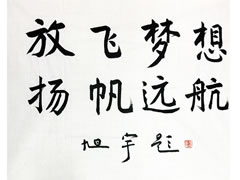 放飞梦想
扬帆远航
旭宇题